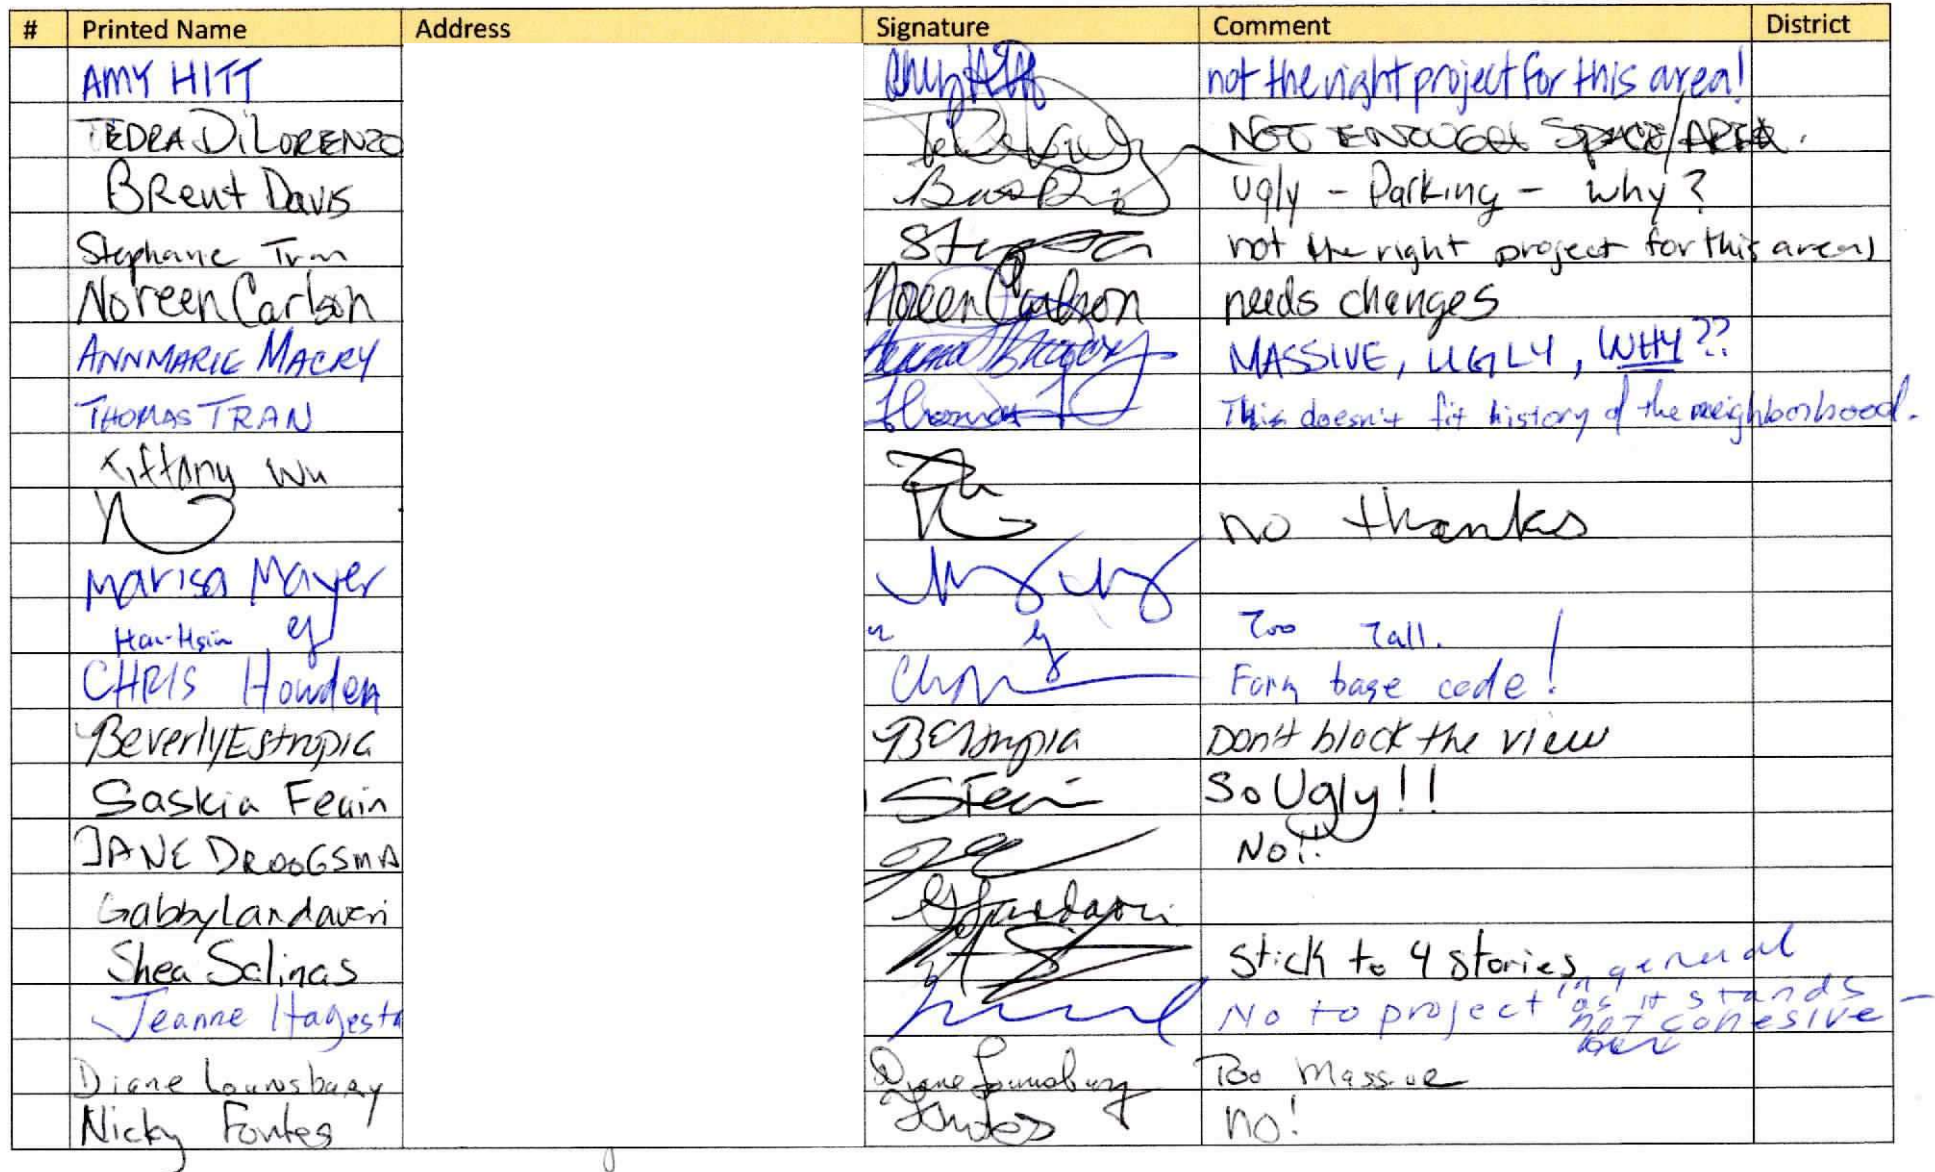 # Printed Name Address Signature Comment District
AMY HITT not the right project for this area!
TEDRA DiLORENZO NOT ENOUGH SPACE/AREA.
BRent Davis ugly - Parking - why?
Stephanie Tran not the right project for this area!
Noreen Carlson Noreen Carlson needs changes
ANNMARIE MACRY MASSIVE, UGLY, WHY??
THOMAS TRAN Thomas T This doesn't fit history of the neighborhood.
Tiffany Wu
no thanks
Marisa Mayer
Hau-Hsin Too Tall.
CHRIS Howden Form base code!
Beverly Estropia BEstropia Don't block the view
Saskia Feain SFeain So Ugly!!
JANE DROOGSMA No!!
Gabby Landaveri GLandaveri
Shea Salinas Stick to 4 stories
Jeanne Hagesta No to project in general
as it stands -
not cohesive
Diane Lounsbury Diane Lounsbury Too Massive
Nicky Fontes Fontes no!